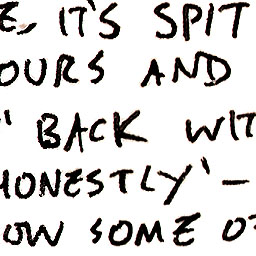 E, IT'S SPIT
OURS AND
" BACK WIT
HONESTLY' –
OW SOME O